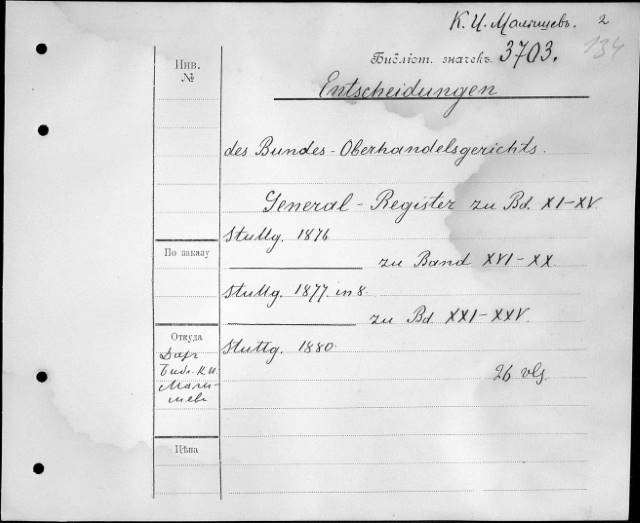 К. И. Малышевъ. 2
Библіот. значекъ 3703. 134
Инв.
№
Entscheidungen
des Bundes-Oberhandelsgerichts.
General-Register zu Bd. XI-XV
Stuttg. 1876
По заказу
zu Band XVI-XX
Stuttg. 1877. in 8.
zu Bd. XXI-XXV
Откуда
Stuttg. 1880.
Даръ
Библ. К. И.
26 vlg.
Малы-
шева
Цѣна